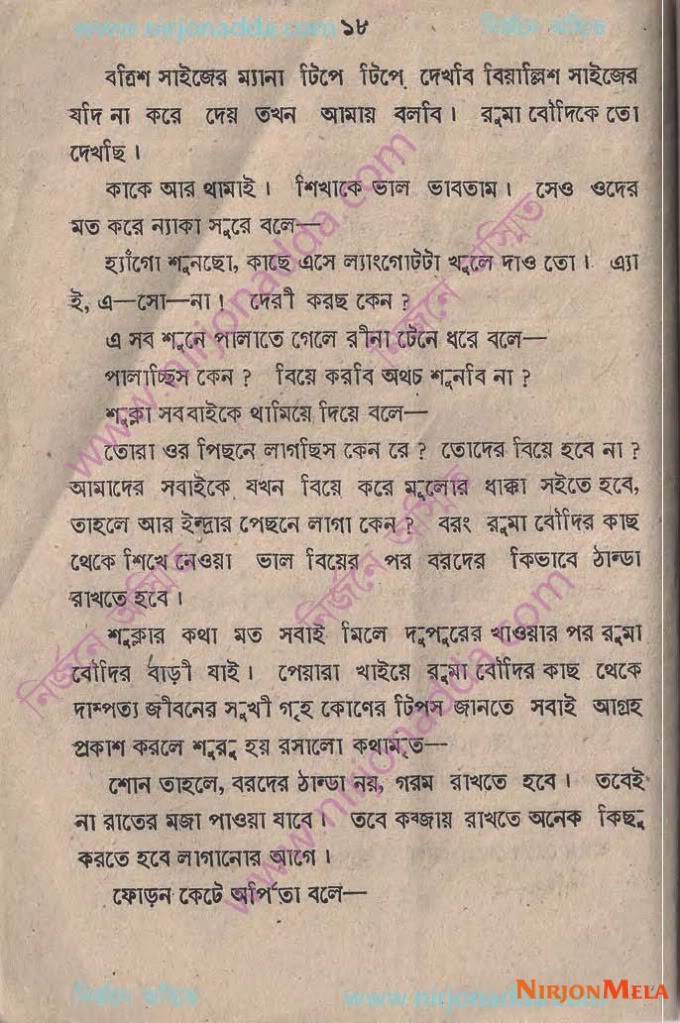 www.nirjonadda.com ১৮ নির্জনে অস্মিত
বত্রিশ সাইজের ম্যানা টিপে টিপে দেখবি বিয়াল্লিশ সাইজের
যদি না করে দেয় তখন আমায় বলবি। রুমা বৌদিকে তো
দেখছি।
কাকে আর থামাই। শিখাকে ভাল ভাবতাম। সেও ওদের
মত করে ন্যাকা সুরে বলে—
হ্যাঁগো শুনছো, কাছে এসে ল্যাংগোটটা খুলে দাও তো। এ্যা
ই, এ—সো—না! দেরী করছ কেন?
এ সব শুনে পালাতে গেলে রীনা টেনে ধরে বলে—
পালাচ্ছিস কেন? বিয়ে করবি অথচ শুনবি না?
শুক্লা সববাইকে থামিয়ে দিয়ে বলে—
তোরা ওর পিছনে লাগছিস কেন রে? তোদের বিয়ে হবে না?
আমাদের সবাইকে যখন বিয়ে করে মুলোর ধাক্কা সইতে হবে,
তাহলে আর ইন্দ্রার পেছনে লাগা কেন? বরং রুমা বৌদির কাছ
থেকে শিখে নেওয়া ভাল বিয়ের পর বরদের কিভাবে ঠান্ডা
রাখতে হবে।
শুক্লার কথা মত সবাই মিলে দুপুরের খাওয়ার পর রুমা
বৌদির বাড়ী যাই। পেয়ারা খাইয়ে রুমা বৌদির কাছ থেকে
দাম্পত্য জীবনের সুখী গৃহ কোণের টিপস জানতে সবাই আগ্রহ
প্রকাশ করলে শুরু হয় রসালো কথামৃত—
শোন তাহলে, বরদের ঠান্ডা নয়, গরম রাখতে হবে। তবেই
না রাতের মজা পাওয়া যাবে। তবে কব্জায় রাখতে অনেক কিছু
করতে হবে লাগানোর আগে।
ফোড়ন কেটে অর্পিতা বলে—
নির্জনে অস্মিত www.nirjonadda.com
NIRJONMELA